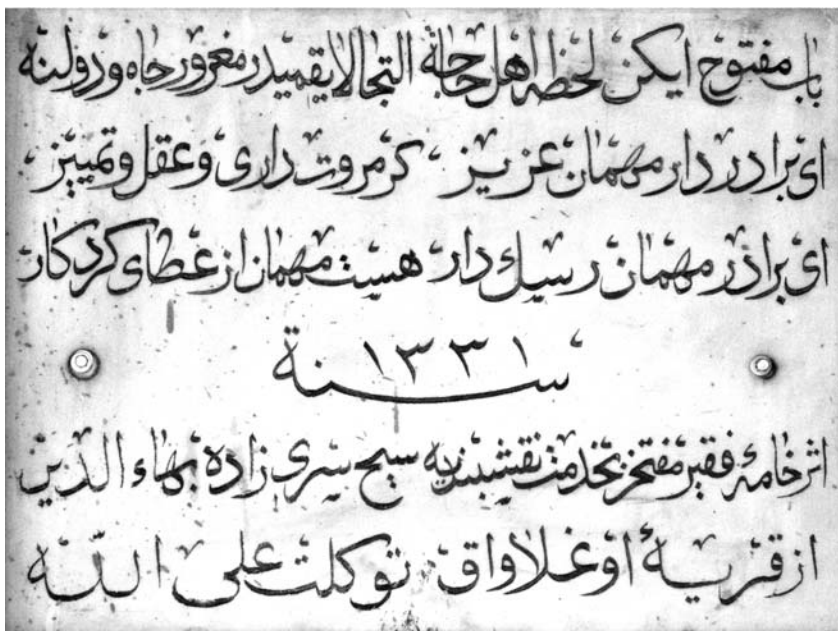 باب مفتوح ايكن لحظه اهل حاجه التجا لايقميدر مغرور جاه و دولته
ای برادر دار مهمان عزیز ، کر مروت داری و عقل و تمییز ،
ای برادر مهمان دار هست مهمان از عطای کردکار
سنة ١٣٣١
اثر خامهٔ فقیر مفتخر بخدمت نقشبندیه شیخ سری زاده بهاء الدین
از قریهٔ اوغلاواق توکلت علی الله